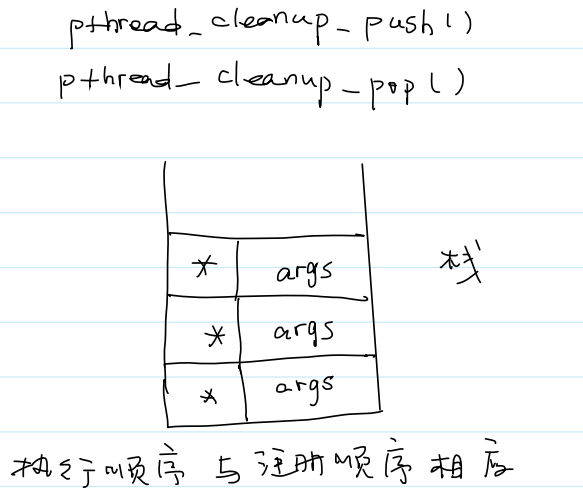 pthread_cleanup_push()
pthread_cleanup_pop()
* args
栈
* args
* args
执行顺序与注册顺序相反